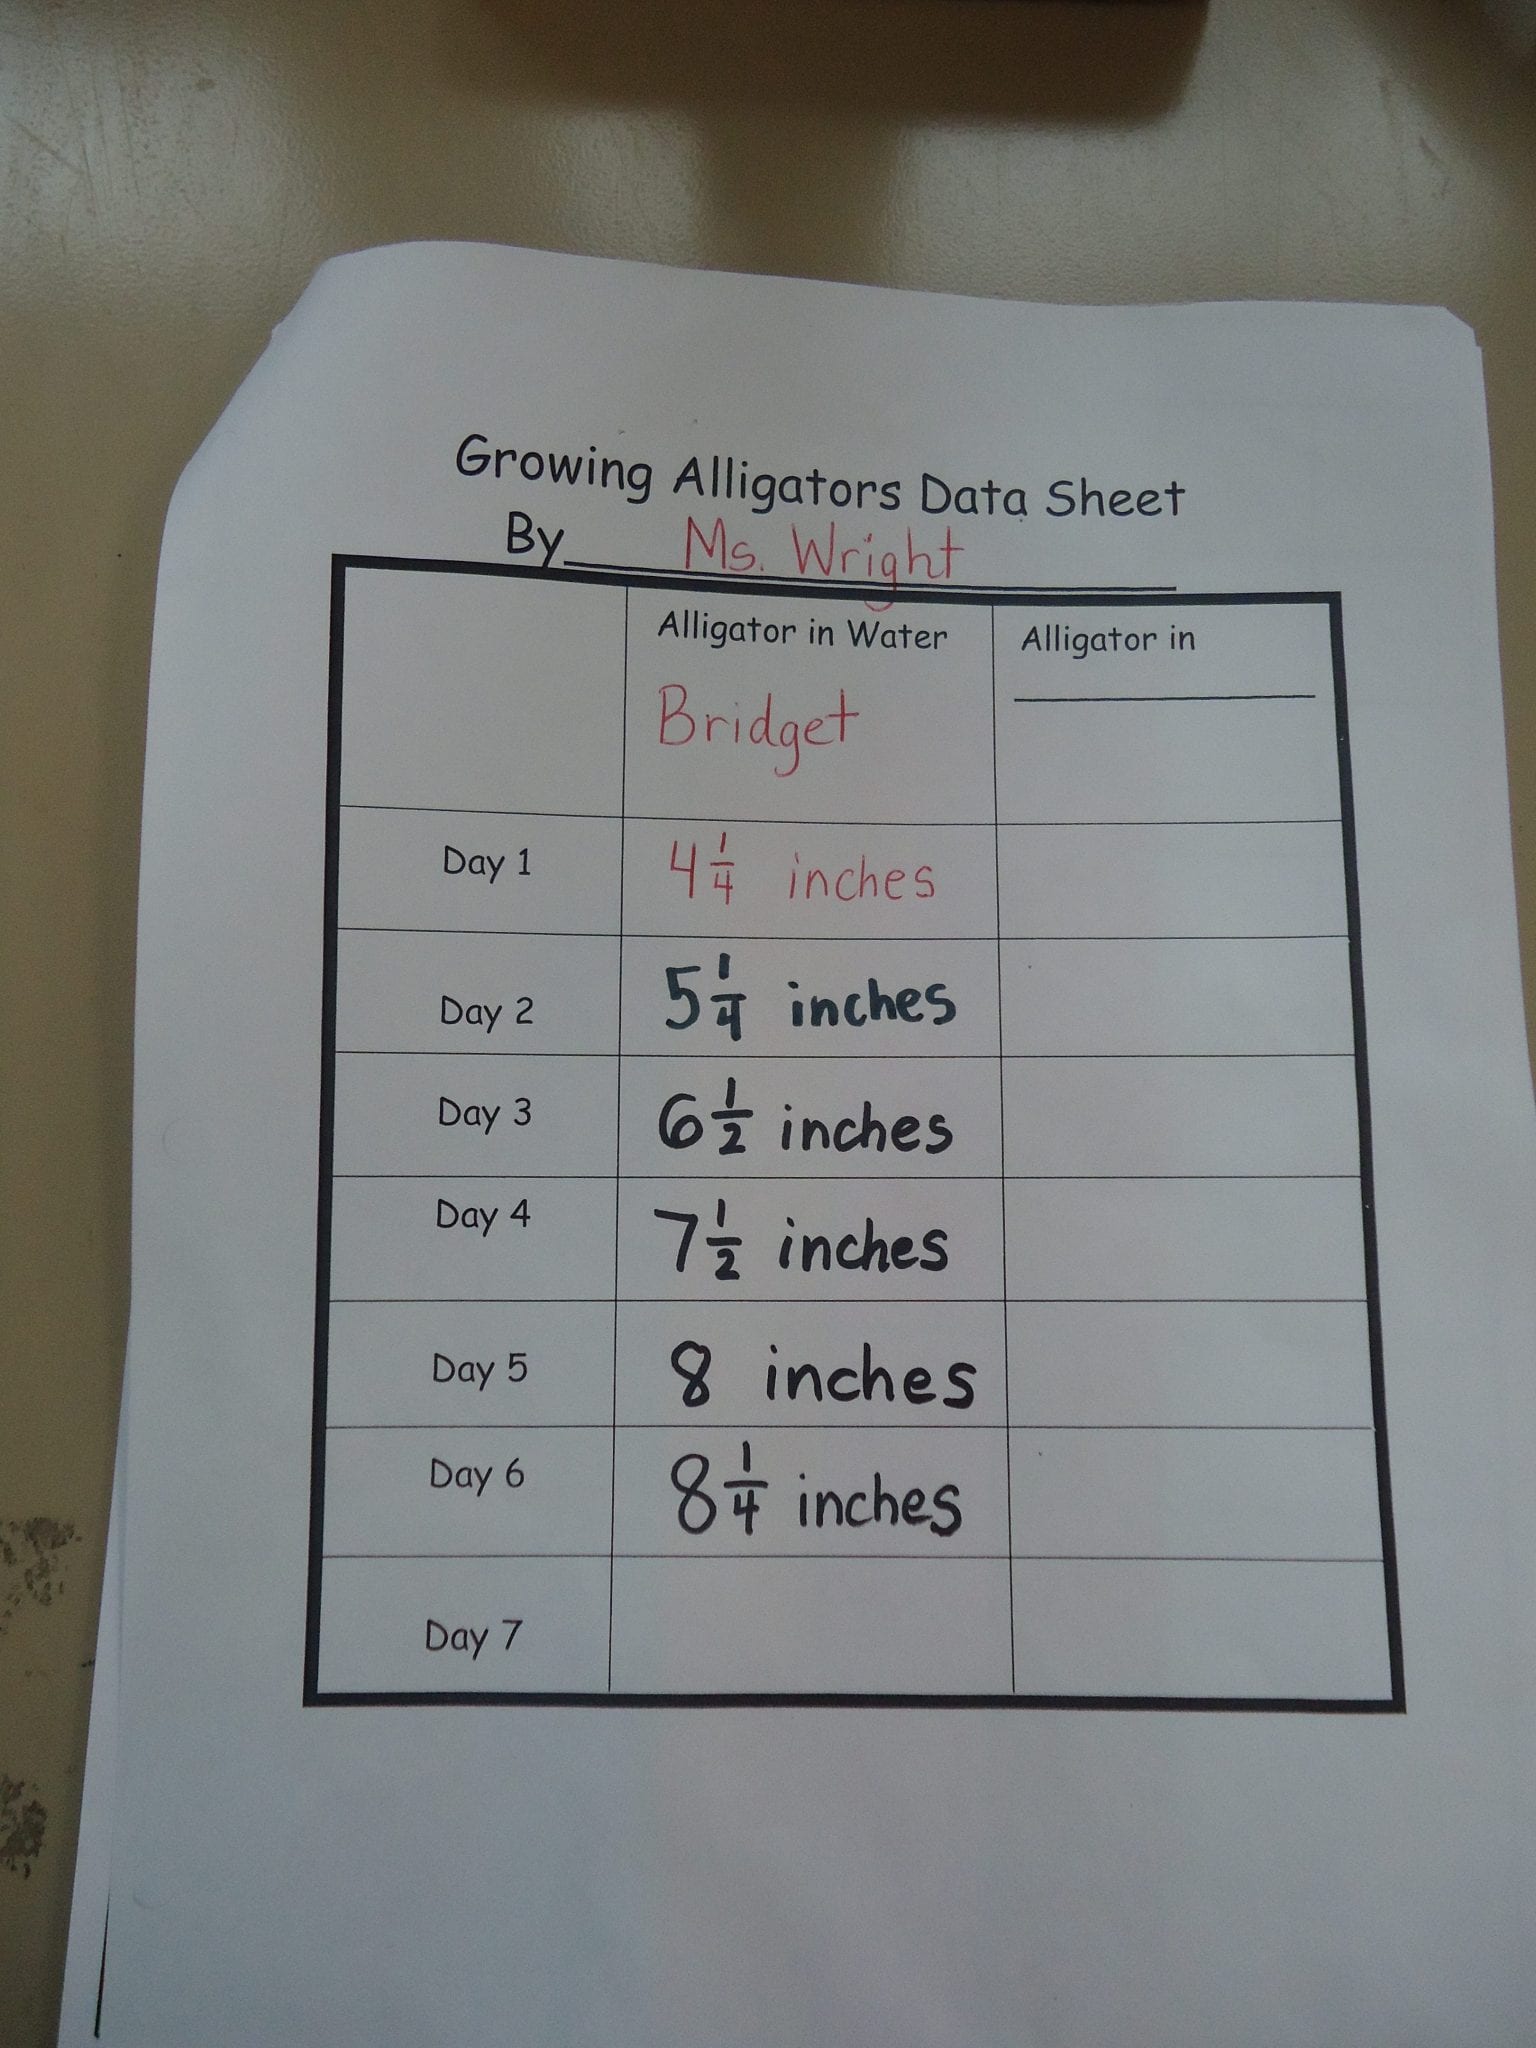 Growing Alligators Data Sheet
By Ms. Wright
Alligator in Water Alligator in
Bridget
Day 1 4 1/4 inches
Day 2 5 1/4 inches
Day 3 6 1/2 inches
Day 4 7 1/2 inches
Day 5 8 inches
Day 6 8 1/4 inches
Day 7